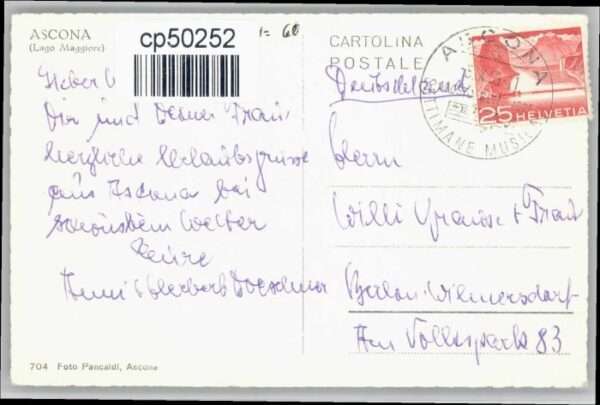 ASCONA
(Lago Maggiore)
cp50252
1= 60
CARTOLINA
POSTALE
Deutschland
ASCONA
SETTIMANE MUSICALI
25 HELVETIA
Lieber
Dir und Deiner Frau
herzliche Urlaubsgrüsse
aus Ascona bei
schönstem Wetter
Eure
Anni & Herbert
Herrn
Willi + Frau
Berlin-Wilmersdorf
Am Volkspark 83
704 Foto Pancaldi, Ascona